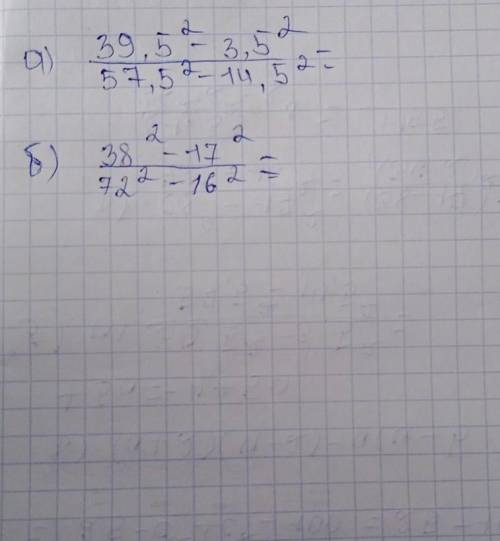 а) (39,5² - 3,5²) / (57,5² - 14,5²) =
б) (38² - 17²) / (72² - 16²) =